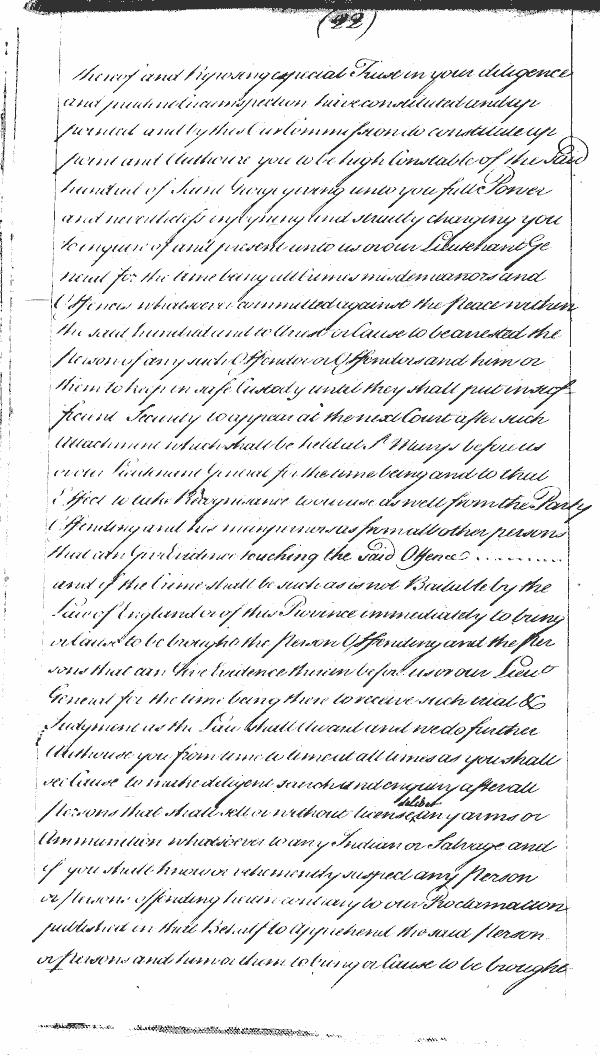 (22)
thereof and Reposing especial Trust in your diligence
and prudent circumspection have constituted and ap
pointed and by this Our Commission do constitute ap
point and Authorize you to be high Constable of the Said
hundred of Saint Georges giving unto you full Power
and nevertheless injoyning and streitly charging you
to inquire of and present unto us or our Lieutenant Ge
neral for the time being all Crimes misdemeanors and
Offences whatsoever committed against the Peace within
the said hundred and to Arrest or Cause to be arrested the
Person of any such Offender or Offenders and him or
them to keep in safe Custody until they shall put in suf
ficient Security to appear at the next Court after such
Attachment which shall be held at St Marys before us
or our Lieutenant General for the time being and to that
Effect to take Recognisance to our use as well from the Party
Offending and his mainpernors as from all other persons
that can Give Evidence touching the said Offence ..........
and if the Crime shall be such as is not Bailable by the
Law of England or of this Province immediately to bring
or Cause to be brought the Person Offending and the Per
sons that can Give Evidence therein before us or our Lieut
General for the time being there to receive such trial &
Judgment as the Law shall Award and we do further
Authorise you from time to time at all times as you shall
see Cause to make diligent search and enquiry after all
Persons that shall sell or without license deliver any arms or
Ammunition whatsoever to any Indian or Salvage and
if you shall know or vehemently suspect any Person
or Persons offending herein contrary to our Proclamation
published in that Behalf to Apprehend the said Person
or Persons and him or them to bring or Cause to be brought